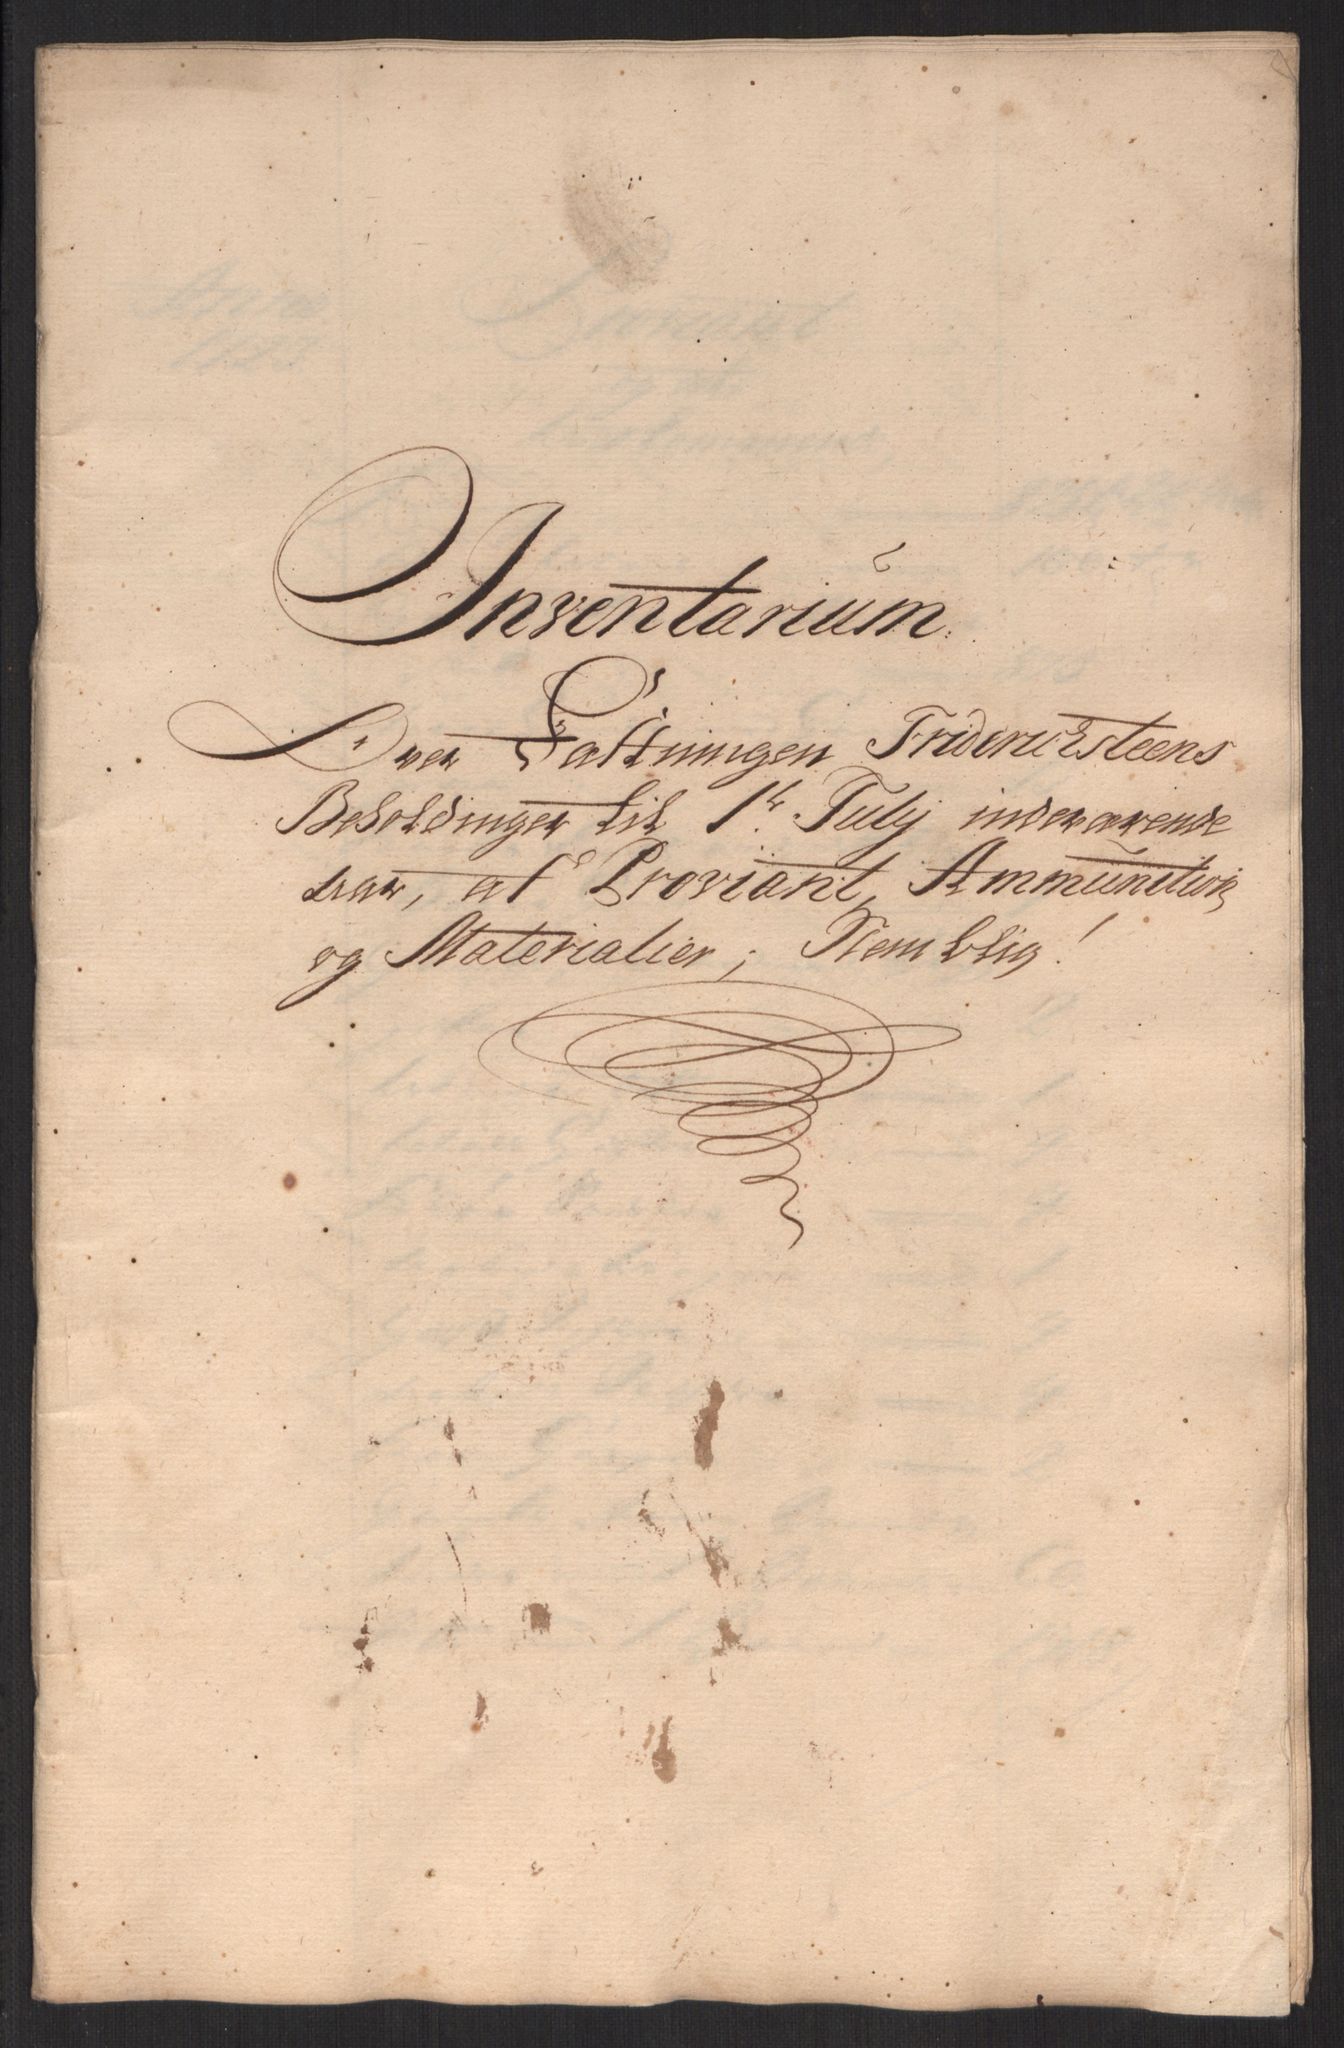 Inventarium
Over Fæstningen Friderichsteens
Beholdinger til 1te July indeværende
aar, af Proviant, Ammunition
og Materialier, Nemblig!